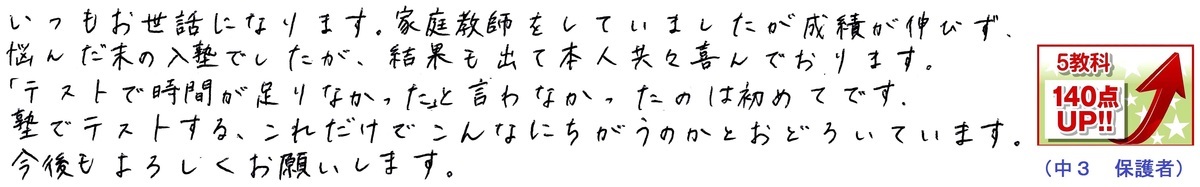 いつもお世話になります。家庭教師をしていましたが成績が伸びず、
悩んだ末の入塾でしたが、結果も出て本人共々喜んでおります。
「テストで時間が足りなかった」と言わなかったのは初めてです、
塾でテストする、これだけでこんなにちがうのかとおどろいています。
今後もよろしくお願いします。
5教科
140点
UP!!
（中３　保護者）